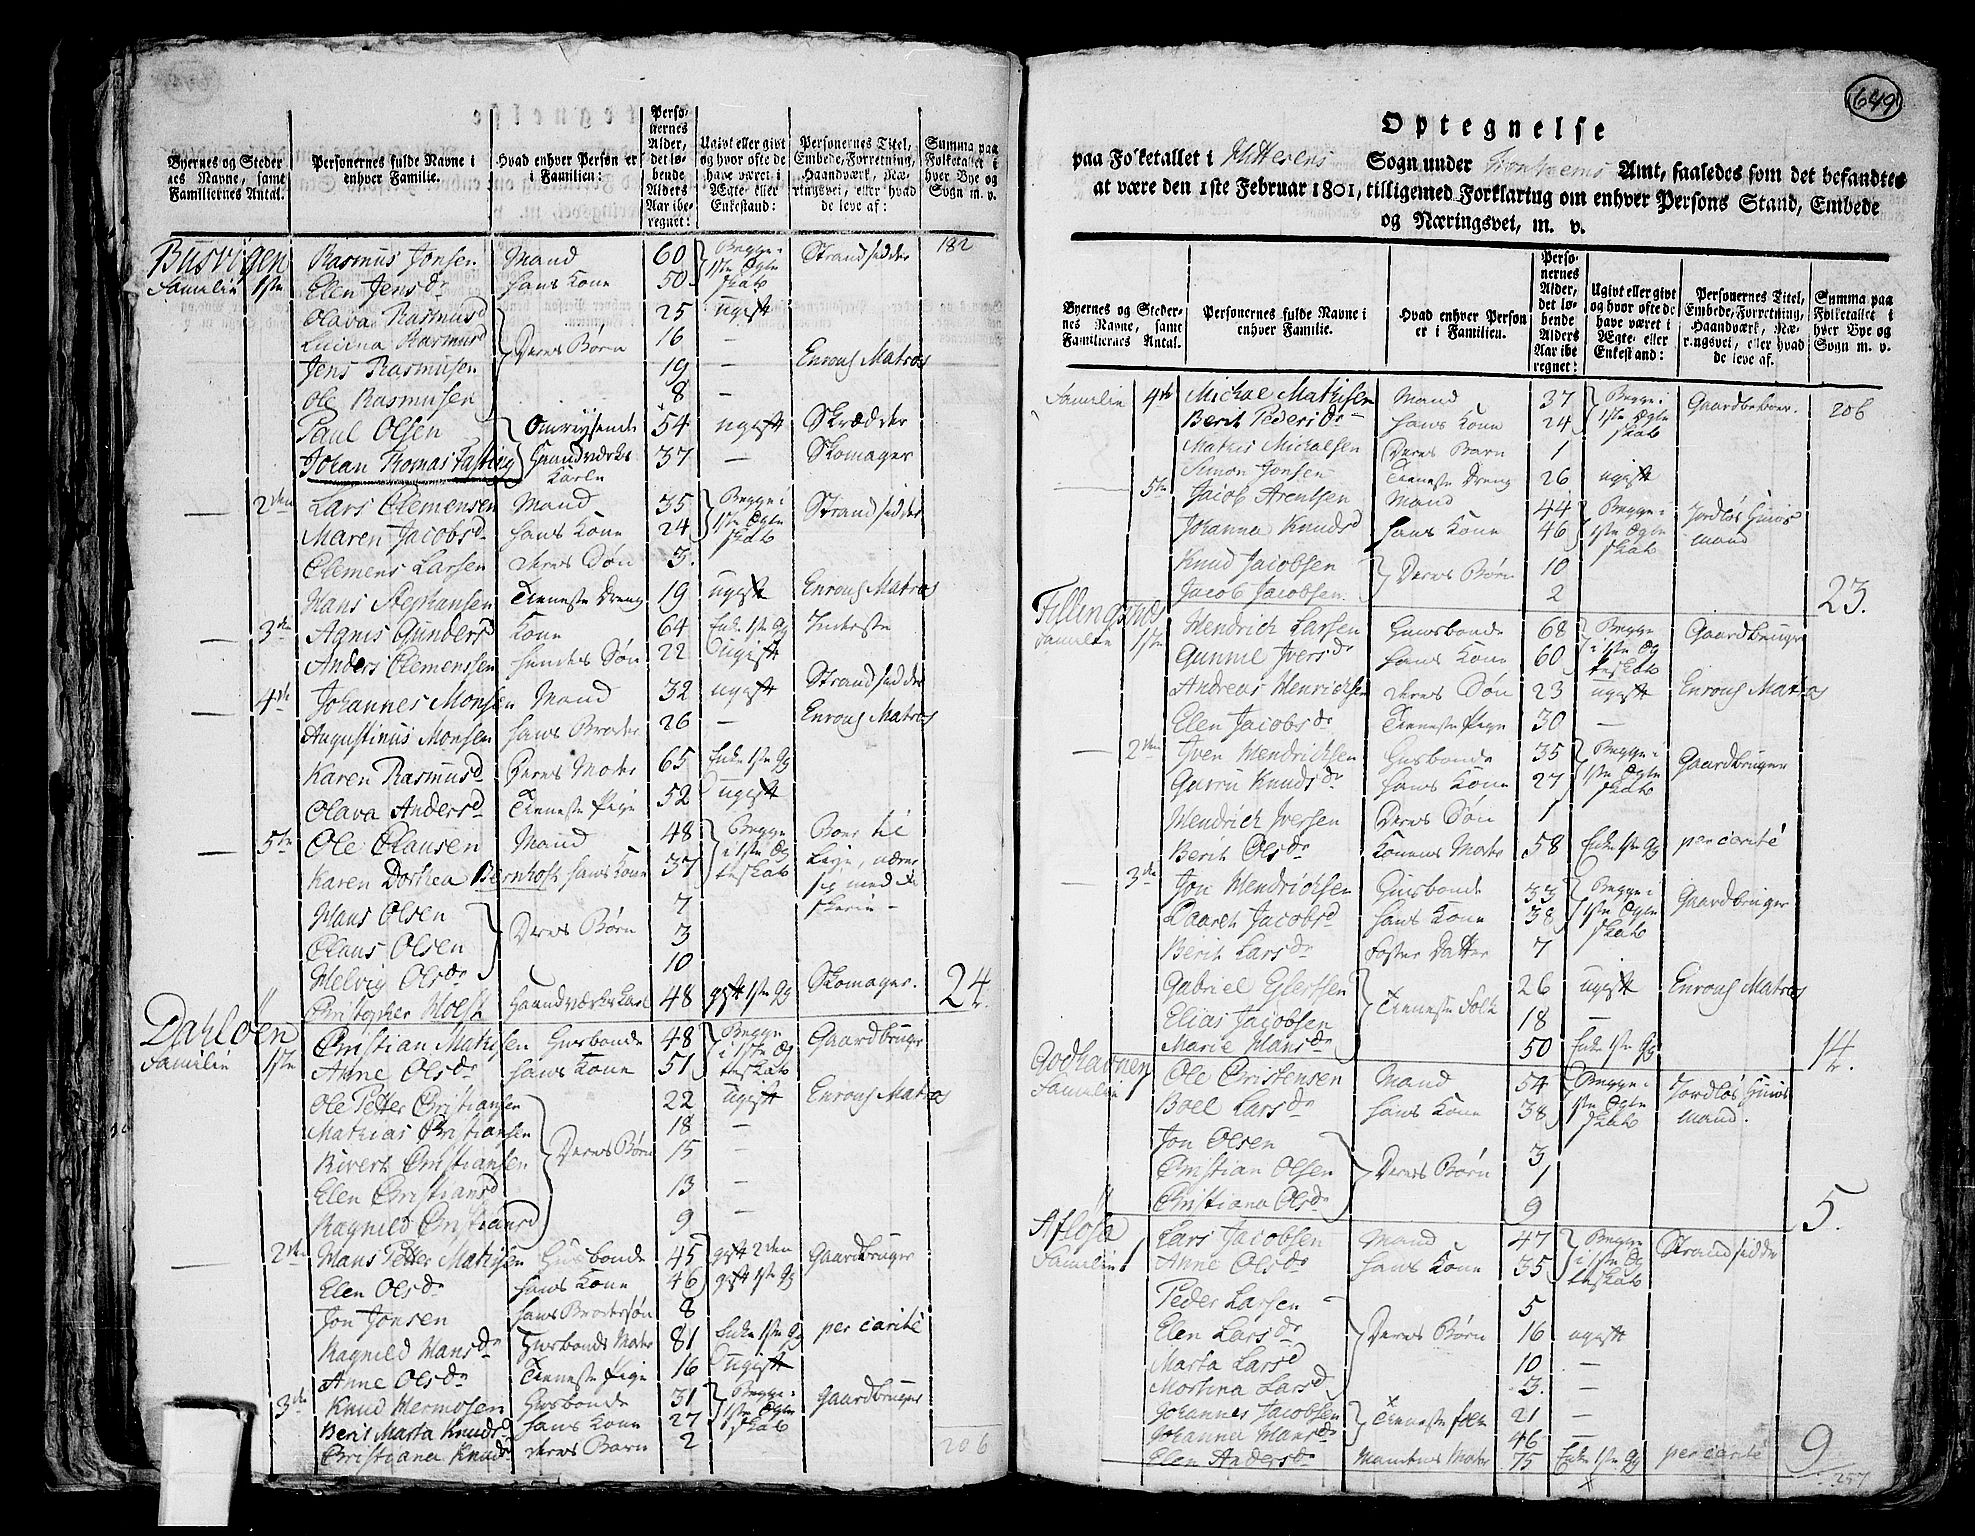 Byernes og Steder
nes Navne, samt
Familiernes Antal.
Personernes fulde Navne i
enhver Familie.
Hvad enhver Person er
i Familien:
Perso-
nernes
Alder,
det lø-
bende
Alders
Aar ibe-
regnet:
Ugivt eller givt
og hvor ofte de
have været i
Ægte- eller
Enkestand:
Personernes Titel,
Embede, Forretning,
Haandværk, Næ-
ringsvei, eller hvad
de leve af:
Summa paa
Folketallet i
hver Bye og
Sogn m. v.
Busvigen Rasmus Jonsen Mand 60 Begge i Strandsidder 182
Familie 1ste Elen Jensdr hans Kone 50 1ste Ægte skab
Olava Rasmusd 25 ugivt
Lucina Rasmusd Deres Børn 16 —
Jens Rasmusen 19 — Enroul: Matros
Ole Rasmusen 8
Paul Olsen Omreysende 54 ugivt Skrædder
Johan Thomas Fasting Haandværks Karle 37 — Skomager
— 2den Lars Clemensen Mand 35 Begge i Strandsidder
Maren Jacobsdr hans Kone 24 1ste Ægte skab
Clemens Larsen deres Søn 3.
Hans Stephansen Tieneste Dreng 19 ugivt Enroul: Matros
— 3die Agnis Gundersd Kone 64 Enke 1ste Gg Inderste
Anders Clemenssen hendes Søn 22 ugivt
— 4de Johannes Monsen Mand 32 ugivt Strandsidder
Augustinus Monsen hans Broder 26 — Enroul: Matros
Karen Rasmusd Deres Moder 65 Enke 1ste Gg
Olava Andersd Tieneste Pige 52 ugivt
— 5te Ole Clausen Mand 48 Begge Boer til
Karen Dorthea Bernhoft hans Kone 37 i 1ste Æg teskab Leye, nærer sig med fiskerie —
Hans Olsen 7
Claus Olsen Deres Børn 3
Helvig Olsdr 10
Christopher Holst Haandværks Karl 48 givt 1ste Gg Skomager. 24.
Dahløen Christian Mathisen Husbonde 48 Begge Gaardbruger
Familie 1ste Anne Olsdr hans Kone 51 i 1ste Æg teskab
Ole Petter Christiansen 22 ugivt Enroul: Matros
Mathias Christiansen 18 —
Sivert Christiansen Deres Børn 15 —
Elen Christiansd 13 —
Ragnild Christiansd 9 —
— 2den Hans Petter Mathisen Husbonde 45 givt 2den Gaardbruger
Elen Olsdr hans Kone 46 givt 1ste Gg
Jon Jonsen hans Brodersøn 8
Ragnild Hansdr Husbonds Moder 81 Enke 1ste Gg per carité
Anne Olsdr Tieneste Pige 16 ugivt
3die Knud Hermosen Husbonde 31 Begge i Gaardbruger
Berit Marta Knudsd hans Kone 27 1ste Ægte skab
Christiana Knudsdr deres Barn 2 206
649
Optegnelse
paa Folketallet i Hitterens Sogn under Tronhiems Amt, saaledes som det befandtes
at være den 1ste Februar 1801, tilligemed Forklaring om enhver Persons Stand, Embede
og Næringsvei, m. v.
Byernes og Steder-
nes Navne, samt
Familiernes Antal.
Personernes fulde Navne i
enhver Familie.
Hvad enhver Person
er i Familien.
Perso-
nernes
Alder,
det lø-
bende
Alders
Aar ibe
regnet:
Ugivt eller givt
og hvor ofte de
have været i
Ægte- eller
Enkestand:
Personernes Titel,
Embede, Forretning,
Haandværk, Næ-
ringsvei, eller hvad
de leve af.
Summa paa
Folketallet i
hver Bye og
Sogn m. v.
Familie 4de Michael Mathisen Mand 37 Begge i Gaardbeboer. 206
Berit Pedersdr hans Kone 24 1ste Ægte skab
Mathis Michalsen Deres Barn 1
Simon Jonsen Tieneste Dreng 26 ugivt
— 5te Jacob Arentsen Mand 44 Begge i Jordløs Huus
Johanna Knudsd hans Kone 46 1ste Ægte skab mand
Knud Jacobsen Deres Børn 10
Jacob Jacobsen. 2 23.
Fillingsnes Hendrich Larsen Husbonde 68 Begge Gaardbruger
Familie 1ste Gunnil Iversdr hans Kone 60 i 1ste Æg teskab
Andreas Henrichsen deres Søn 23 ugivt Enroul: Matros
Elen Jacobsdr Tieneste Pige 30 —
— 2den Iver Hendrichsen Husbonde 35 Begge i Gaardbruger
Gurru Knudsdr hans Kone 27 1ste Ægte skab
Hendrich Iversen Deres Søn 1
Berit Olsdr Konens Moder 58 Enke 1ste Gg per carité
— 3die Jon Hendrichsen Husbonde 33 Begge i Gaardbruger
Maaret Jacobsd hans Kone 38 1ste Ægte skab
Berit Larsdr foster Datter 7
Gabriel Eylertsen 26 ugivt Enroul: Matros
Elias Jacobsen Tieneste Folk 18 —
Marie Hansdr 50 Enke 1ste Gg 14.
Godhavnen Ole Christensen Mand 54 Begge i Jordløs Huus
Familie 1 Boel Larsdr hans Kone 38 1ste Ægte skab mand.
Jon Olsen 3
Christian Olsen Deres Børn 1
Christiana Olsdr 9 5.
Lars Jacobsen Mand 47 Begge Strandsidder
Familie 1 Anne Olsdr hans Kone 35 i 1ste Æg teskab
Peder Larsen 5
Elen Larsdr Deres Børn 16 ugivt
Marta Larsd 10 —
Mortina Larsd 3. —
Johannes Jacobsen Tieneste folk 21 —
Johanna Hansdr 46 —
Elen Andersdr Mandens Moder 75 Enke 1ste Gg per carité 9
257